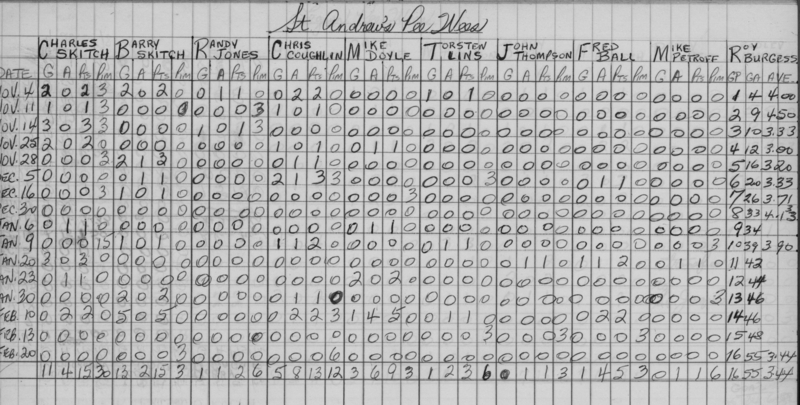 St Andrew's Pee Wees
CHARLES SKITCH BARRY SKITCH RANDY JONES CHRIS COUGHLIN MIKE DOYLE TORSTEN LINS JOHN THOMPSON FRED BALL MIKE PETROFF ROY BURGESS
DATE G A Pts Pim G A Pts Pim G A Pts Pim G A Pts Pim G A Pts Pim G A Pts Pim G A Pts Pim G A Pts Pim G A Pts Pim GP GA AVE.
NOV. 4 2 0 2 3 2 0 2 0 0 1 1 0 0 2 2 0 0 0 0 0 1 0 1 0 0 0 0 0 0 0 0 0 0 0 0 0 1 4 4.00
NOV. 11 1 0 1 3 0 0 0 0 0 0 0 3 1 0 1 0 0 0 0 0 0 0 0 0 0 0 0 0 0 0 0 0 0 0 0 0 2 9 4.50
NOV. 14 3 0 3 3 0 0 0 0 1 0 1 3 0 0 0 0 0 0 0 0 0 0 0 0 0 0 0 0 0 0 0 0 0 0 0 0 3 10 3.33
NOV. 25 2 0 2 0 0 0 0 0 0 0 0 0 1 0 1 0 0 1 1 0 0 0 0 0 0 0 0 0 0 0 0 0 0 0 0 0 4 12 3.00
NOV. 28 0 0 0 3 2 1 3 0 0 0 0 0 0 1 1 0 0 0 0 0 0 0 0 0 0 0 0 0 0 0 0 0 0 0 0 0 5 16 3.20
DEC. 5 0 0 0 0 0 1 1 0 0 0 0 0 2 1 3 3 0 0 0 0 0 0 0 3 0 0 0 0 0 1 1 0 0 0 0 0 6 20 3.33
DEC. 16 0 0 0 3 1 0 1 0 0 0 0 0 0 0 0 0 0 0 0 3 0 0 0 0 0 0 0 0 0 0 0 0 0 0 0 0 7 26 3.71
DEC. 30 0 0 0 0 0 0 0 0 0 0 0 0 0 0 0 0 0 0 0 0 0 0 0 0 0 0 0 0 0 0 0 0 0 0 0 0 8 33 4.13
JAN. 6 0 1 1 0 0 0 0 0 0 0 0 0 0 0 0 0 0 1 1 0 0 0 0 0 0 0 0 0 0 0 0 0 0 0 0 0 9 34
JAN 9 0 0 0 15 1 0 1 0 0 0 0 0 1 1 2 0 0 0 0 0 0 1 1 0 0 0 0 0 0 0 0 0 0 0 0 3 10 39 3.90
JAN. 20 3 0 3 0 0 0 0 0 0 0 0 0 0 0 0 0 0 0 0 0 0 0 0 0 0 1 1 0 1 1 2 0 0 1 1 0 11 42
JAN. 23 0 1 1 0 0 0 0 0 0 0 0 0 0 0 0 0 2 0 2 0 0 0 0 0 0 0 0 0 0 0 0 0 0 0 0 0 12 44
JAN. 30 0 0 0 0 2 0 2 0 0 0 0 0 0 1 1 0 0 0 0 0 0 0 0 0 0 0 0 0 0 0 0 0 0 0 0 3 13 46
FEB. 10 0 2 2 0 5 0 5 0 0 0 0 0 0 2 2 3 1 4 5 0 0 1 1 0 0 0 0 0 0 2 2 0 0 0 0 0 14 46
FEB. 13 0 0 0 0 0 0 0 0 0 0 0 0 0 0 0 0 0 0 0 0 0 0 0 3 0 0 0 3 0 0 0 3 0 0 0 0 15 48
FEB. 20 0 0 0 0 0 0 0 3 0 0 0 0 0 0 0 6 0 0 0 0 0 0 0 0 0 0 0 0 0 0 0 0 0 0 0 0 16 55 3.44
11 4 15 30 13 2 15 3 1 1 2 6 5 8 13 12 3 6 9 3 1 2 3 6 0 1 1 3 1 4 5 3 0 1 1 6 16 55 3.44